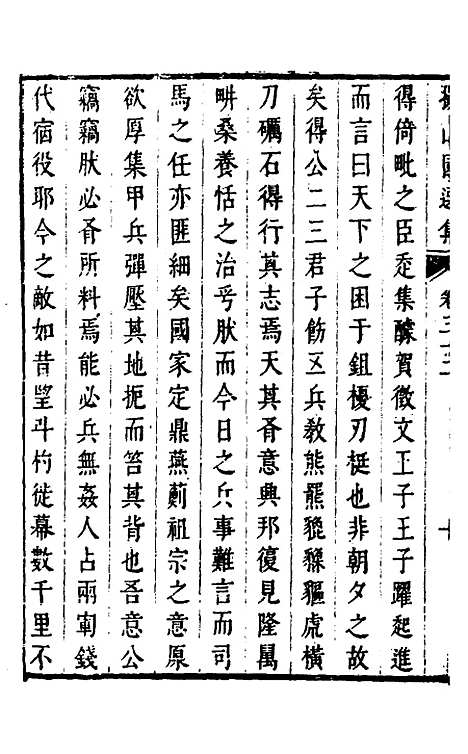 得倚毗之臣忝集醵賀徵文王子王子躍起進
而言曰天下之困于鉏櫌刃梃也非朝夕之故
矣得公二三君子飭五兵教熊羆貔貅貙虎橫
刀礪石得行其志焉天其胥意興邦復見隆萬
畊桑養恬之治乎肰而今日之兵事難言而司
馬之任亦匪細矣國家定鼎燕薊祖宗之意原
欲厚集甲兵彈壓其地扼而笞其背也吾意公
竊竊肰必胥所料焉能必兵無姦人占兩甸錢
代宿役耶今之敵如昔望斗杓徙幕數千里不